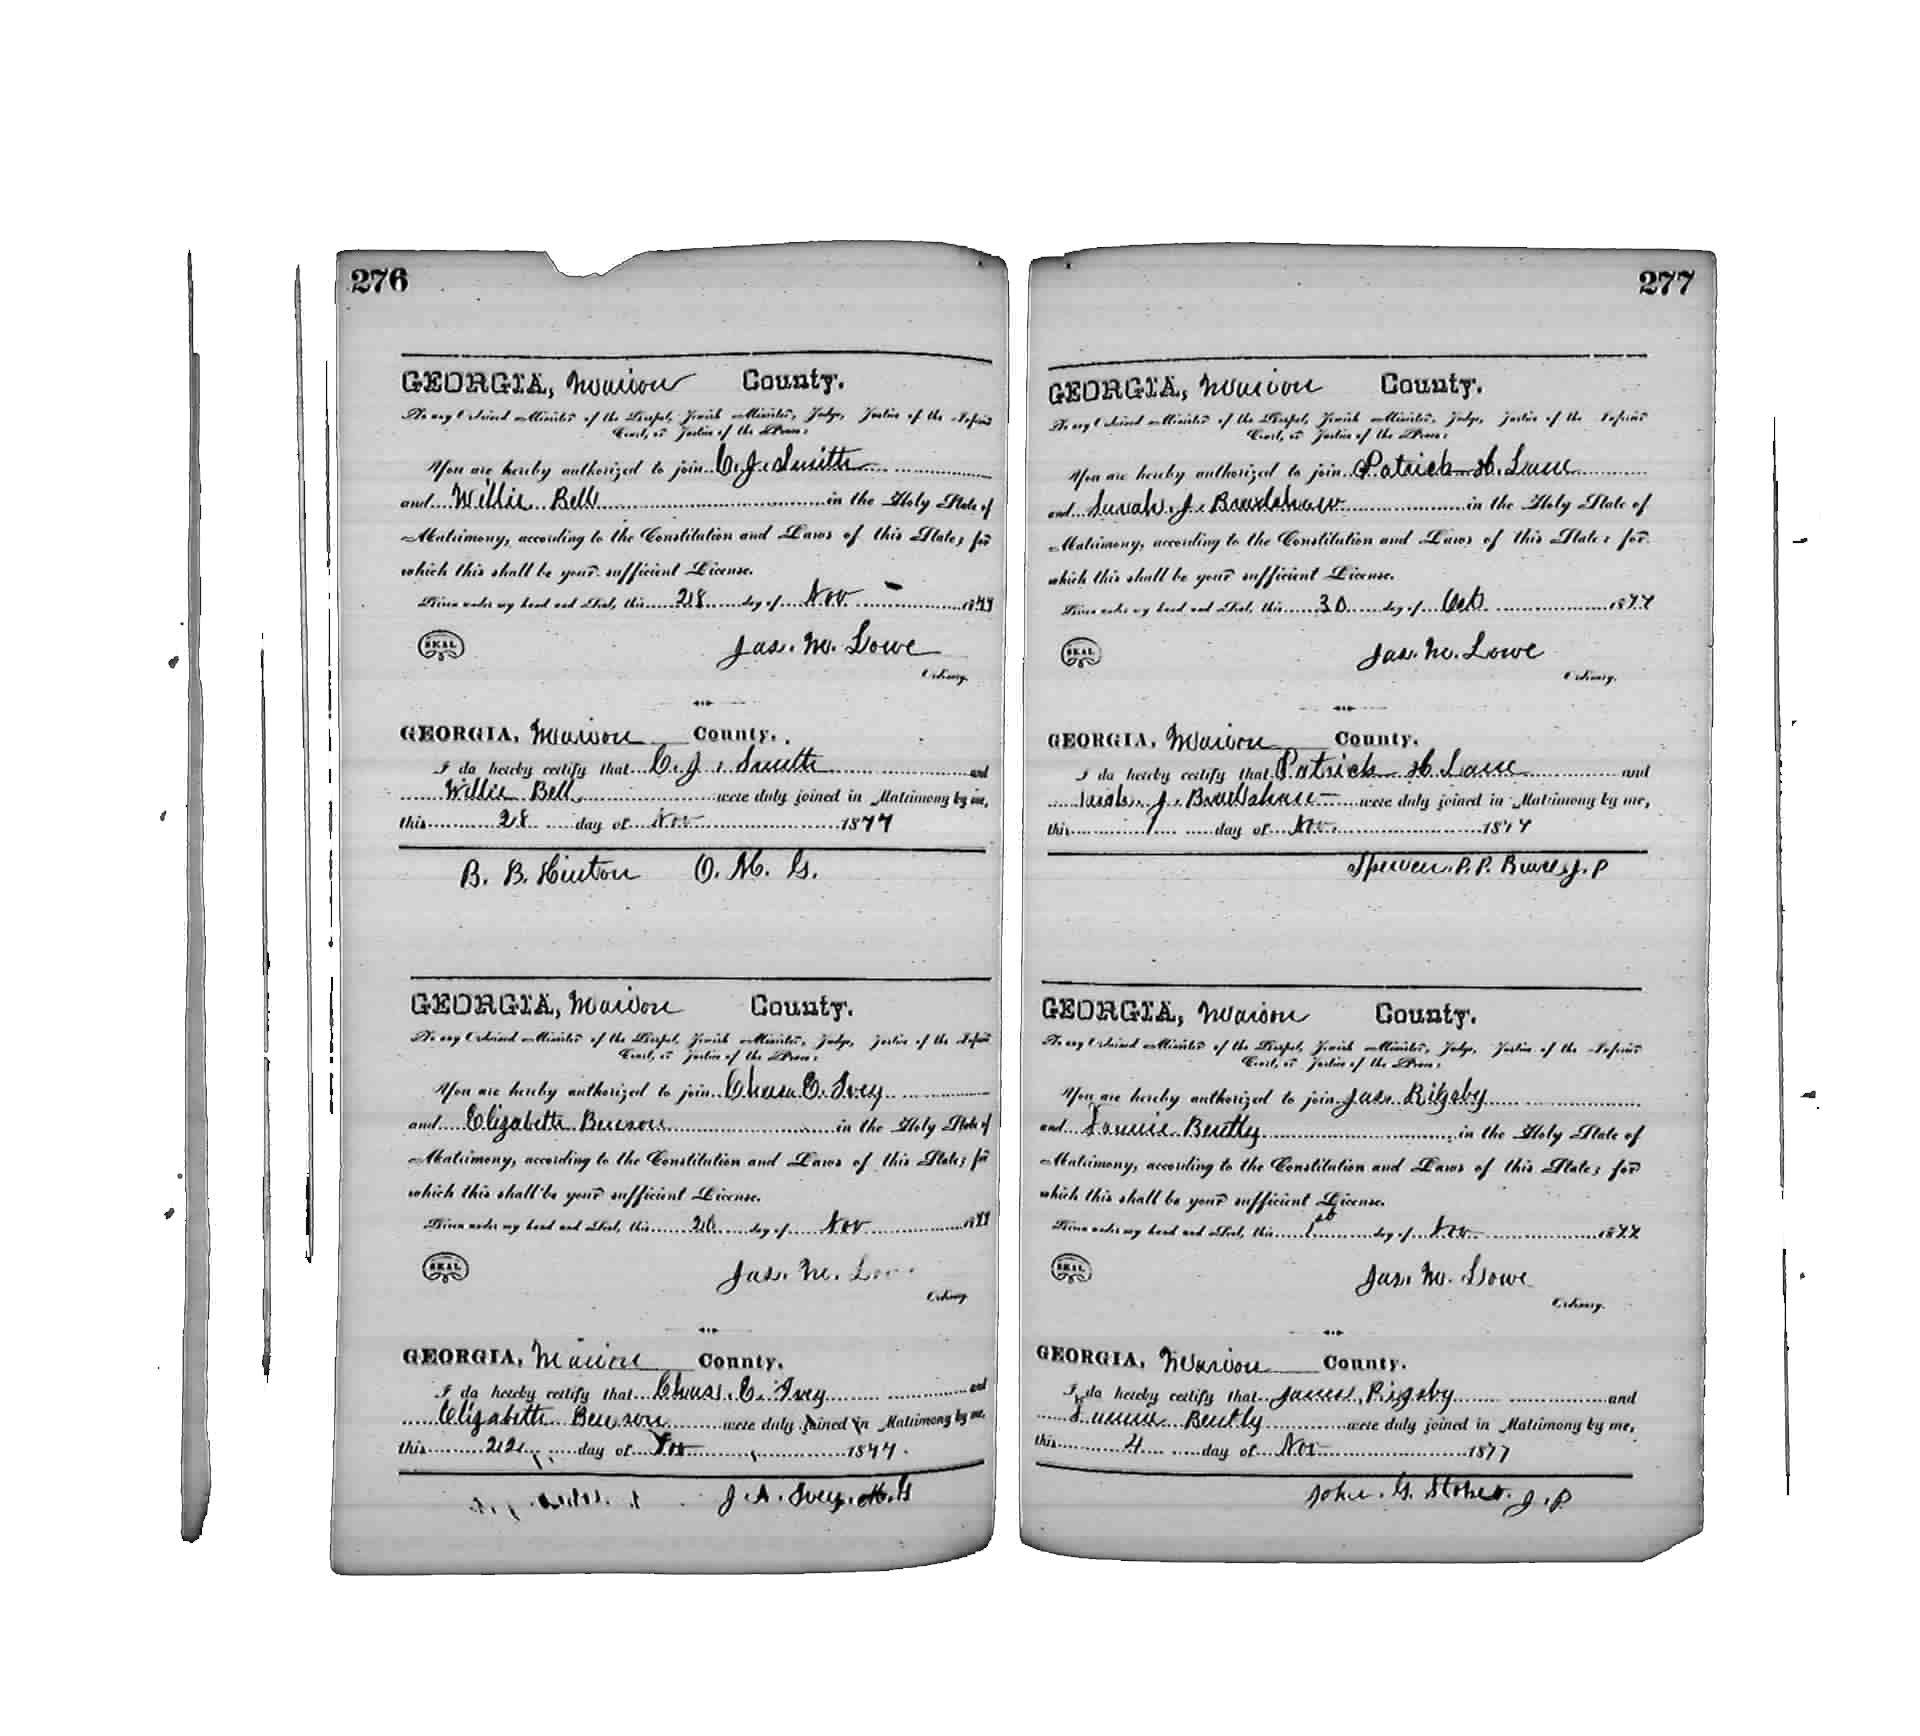 276
GEORGIA, Marion County.
To any Ordained Minister of the Gospel, Jewish Minister, Judge, Justice of the Inferior
Court, or Justice of the Peace:
You are hereby authorized to join C. J. Smith
and Willie Bell in the Holy State of
Matrimony, according to the Constitution and Laws of this State; for
which this shall be your sufficient License.
Given under my hand and Seal, this 28 day of Nov 1877
SEAL
Jas. M. Lowe
Ordinary.
GEORGIA, Marion County.
I do hereby certify that C. J. Smith and
Willie Bell were duly joined in Matrimony by me,
this 28 day of Nov 1877
B. B. Hinton O. M. G.
GEORGIA, Marion County.
To any Ordained Minister of the Gospel, Jewish Minister, Judge, Justice of the Inferior
Court, or Justice of the Peace:
You are hereby authorized to join Chas. E. Ivey
and Elizabeth Benson in the Holy State of
Matrimony, according to the Constitution and Laws of this State; for
which this shall be your sufficient License.
Given under my hand and Seal, this day of Nov 1877
SEAL
Jas. M. Lowe
Ordinary.
GEORGIA, Marion County.
I do hereby certify that Chas. E. Ivey and
Elizabeth Benson were duly joined in Matrimony by me,
this 22 day of Nov 1877.
J. A. Ivey. M. G
277
GEORGIA, Marion County.
To any Ordained Minister of the Gospel, Jewish Minister, Judge, Justice of the Inferior
Court, or Justice of the Peace:
You are hereby authorized to join Patrick H. Lane
and Sarah. J. Bradshaw in the Holy State of
Matrimony, according to the Constitution and Laws of this State; for
which this shall be your sufficient License.
Given under my hand and Seal, this 30 day of Oct 1877
SEAL
Jas. M. Lowe
Ordinary.
GEORGIA, Marion County.
I do hereby certify that Patrick H. Lane and
J. Bradshaw were duly joined in Matrimony by me,
this 1 day of Nov. 1877
P. P. J. P
GEORGIA, Marion County.
To any Ordained Minister of the Gospel, Jewish Minister, Judge, Justice of the Inferior
Court, or Justice of the Peace:
You are hereby authorized to join Jas. Rigsby
and Fannie Bently in the Holy State of
Matrimony, according to the Constitution and Laws of this State; for
which this shall be your sufficient License.
Given under my hand and Seal, this 1st day of Nov 1877
SEAL
Jas. M. Lowe
Ordinary.
GEORGIA, Marion County.
I do hereby certify that James Rigsby and
Fannie Bently were duly joined in Matrimony by me,
this 4 day of Nov 1877
John. G. Stokes. J. P